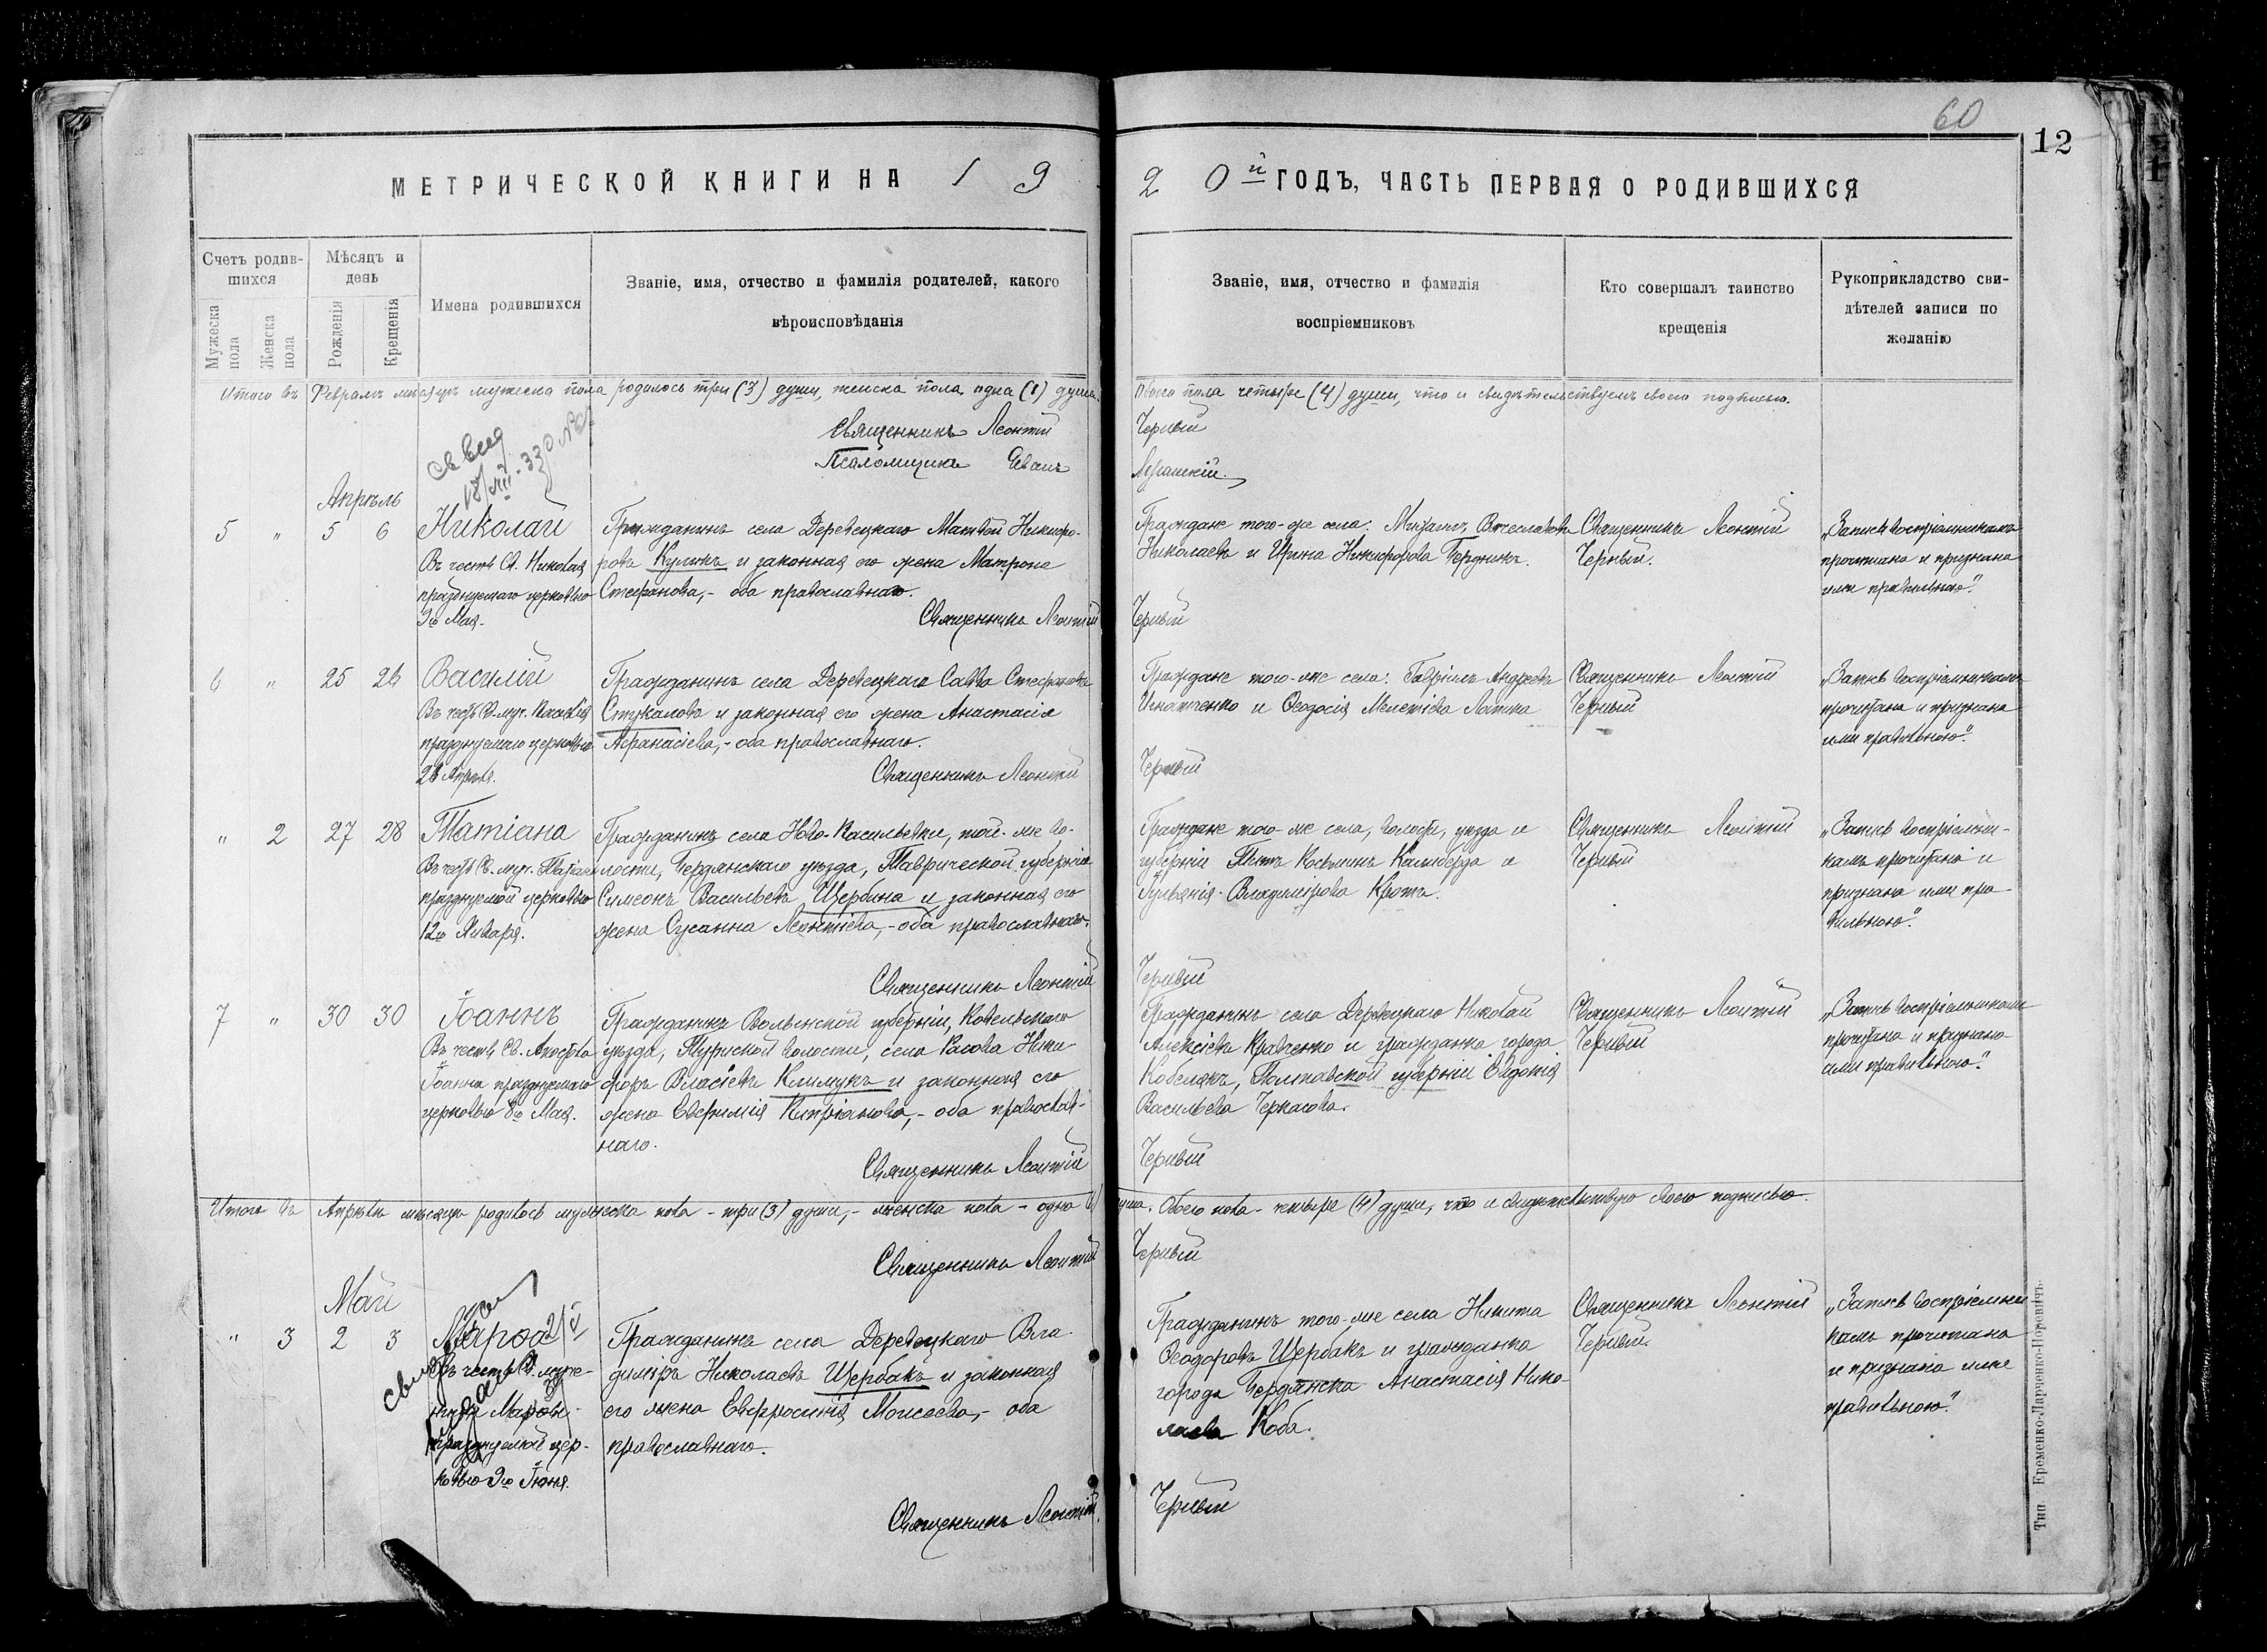 60
12
МЕТРИЧЕСКОЙ КНИГИ НА 19
20й ГОДЪ, ЧАСТЬ ПЕРВАЯ О РОДИВШИХСЯ
Счетъ родившихся
Мужеска пола
Женска пола
Мѣсяцъ и день
Рожденія
Крещенія
Имена родившихся
Званіе, имя, отчество и фамилія родителей, какого
вѣроисповѣданія
Званіе, имя, отчество и фамилія
воспріемниковъ
Кто совершалъ таинство
крещенія
Рукоприкладство сви-
дѣтелей записи по
желанію
Итого въ Февралѣ мѣсяцѣ мужеска пола родилось три (3) души, женска пола одна (1) душа.
Обоего пола четыре (4) души, что и свидѣтельствуемъ своею подписью.
Священникъ Леонтій
Черный
Псаломщикъ Иванъ
Апрѣль
5 " 5 6 Николай
Въ честь Св. Николая
празднуемаго церковью
9го Мая.
Гражданинъ села Деревецкаго Матвей Никифо-
ровъ Куликъ и законная его жена Матрона
Стефанова,- оба православнаго.
Священникъ Леонтій
Граждане того-же села: Вячеславовъ
Николаевъ и Ирина Никифорова
Черный
Священникъ Леонтій
Черный.
"Запись воспріемникамъ
прочитана и признана
ими правильною".
6 " 25 26 Василій
Въ честь Св. муч. Василія
празднуемаго церковью
26 Апрѣля.
Гражданинъ села Деревецкаго Савва Стефановъ
Стукаловъ и законная его жена Анастасія
Афанасіева,- оба православнаго.
Священникъ Леонтій
Граждане того-же села: Гавріилъ Андреевъ
Игнатченко и Ѳеодосія Мелетіева
Черный
Священникъ Леонтій
Черный
"Запись воспріемникамъ
прочитана и признана
ими правильною".
" 2 27 28 Татіана
Въ честь Св. муч. Татіаны
празднуемой церковью
12го Января.
Гражданинъ села Ново-Васильевки, той-же во-
лости, Бердянскаго уѣзда, Таврической губерніи
Симеонъ Васильевъ Щербина и законная его
жена Сусанна Леонтіева,- оба православнаго.
Священникъ Леонтій
Граждане того-же села, волости, уѣзда и
губерніи Титъ Косьминъ Калиберда и
Владимірова Кротъ.
Черный
Священникъ Леонтій
Черный
"Запись воспріемни-
камъ прочитана и
признана ими пра-
вильною".
7 " 30 30 Іоаннъ
Въ честь Св. Апостола
Іоанна празднуемаго
церковью 8го Мая.
Гражданинъ Волынской губерніи, Ковельскаго
уѣзда, Турійской волости, села Ники-
форъ Власіевъ Климукъ и законная его
жена Евфимія Кипріанова,- оба православ-
наго.
Священникъ Леонтій
Гражданинъ села Деревецкаго Николай
Алексіевъ Кравченко и гражданка города
Кобелякъ, Полтавской губерніи Евдокія
Васильева Черкасова.
Черный
Священникъ Леонтій
Черный
"Запись воспріемникамъ
прочитана и признана
ими правильною".
Итого въ Апрѣлѣ мѣсяцѣ родилось мужеска пола - три (3) души,- женска пола - одна (1)
душа. Обоего пола - четыре (4) души, что и свидѣтельствую своею подписью.
Священникъ Леонтій
Черный
Май
" 3 2 3 Марѳа
Въ честь Св. муче-
ницы Марѳы
празднуемой цер-
ковью 9го Іюня.
Гражданинъ села Деревецкаго Вла-
диміръ Николаевъ Щербакъ и законная
его жена Евфросинія Моисеева,- оба
православнаго.
Священникъ Леонтій
Гражданинъ того-же села Никита
Ѳеодоровъ Щербакъ и гражданка
города Бердянска Анастасія Нико-
лаева Коба.
Черный
Священникъ Леонтій
Черный.
"Запись воспріемни-
камъ прочитана
и признана ими
правильною".
Тип. Еременко-Ларченко-Норевичъ